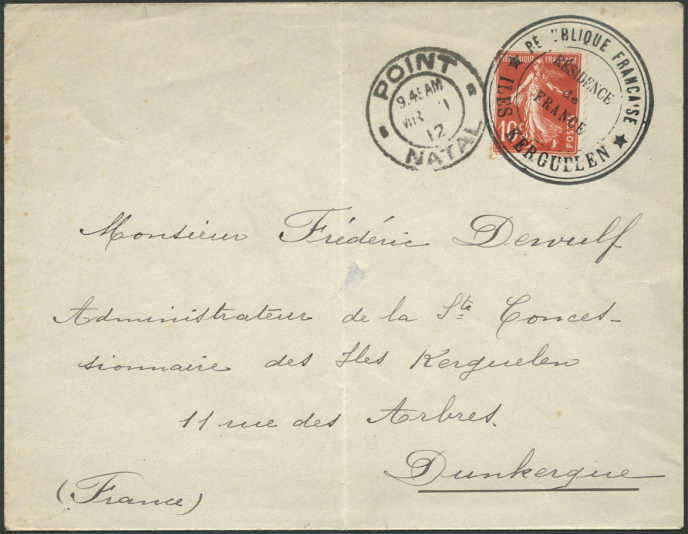 POINT
9.45 AM
MR 1
12
NATAL
REPUBLIQUE FRANÇAISE
RESIDENCE
de
FRANCE
ILES KERGUELEN
10c
POSTES
Monsieur Frédéric Dewulf
Administrateur de la Sté Conces-
sionnaire des Iles Kerguelen
11 rue des Arbres.
Dunkerque
(France)